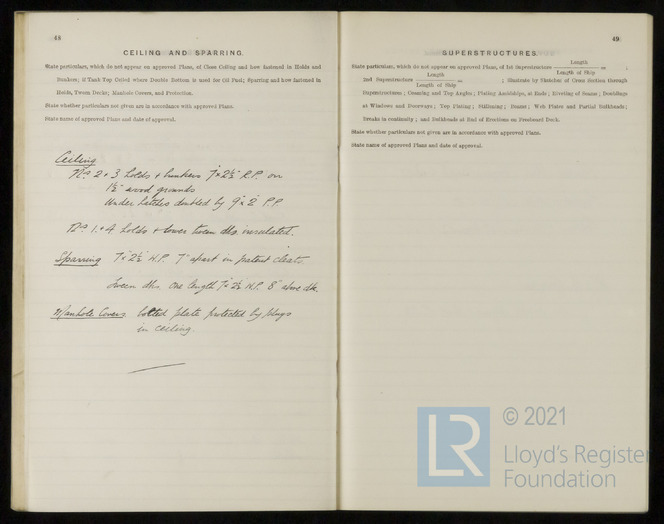 48
CEILING AND SPARRING.
State particulars, which do not appear on approved Plans, of Close Ceiling and how fastened in Holds and
Bunkers; if Tank Top Ceiled where Double Bottom is used for Oil Fuel; Sparring and how fastened in
Holds, Tween Decks; Manhole Covers, and Protection.
State whether particulars not given are in accordance with approved Plans.
State name of approved Plans and date of approval.
Ceiling
Nos 2 + 3 holds + bunkers 7" x 2½" P.P. on
1½" wood grounds
Under hatches doubled by 9" x 2" P.P.
Nos 1 + 4 holds + lower tween dks insulated.
Sparring 7" x 2½" W.P. 7" apart in patent cleats.
Tween dks. One length 7" x 2½" W.P. 8" above dk.
Manhole Covers bolted plate protected by plugs
in ceiling
49
SUPERSTRUCTURES.
State particulars, which do not appear on approved Plans, of 1st Superstructure Length / Length of Ship = ;
2nd Superstructure Length / Length of Ship = ; Illustrate by Sketches of Cross Section through
Superstructures; Coaming and Top Angles; Plating Amidships, at Ends; Riveting of Seams; Doublings
at Windows and Doorways; Top Plating; Stiffening; Beams; Web Plates and Partial Bulkheads;
Breaks in continuity; and Bulkheads at End of Erections on Freeboard Deck.
State whether particulars not given are in accordance with approved Plans.
State name of approved Plans and date of approval.
LR
© 2021
Lloyd's Register
Foundation